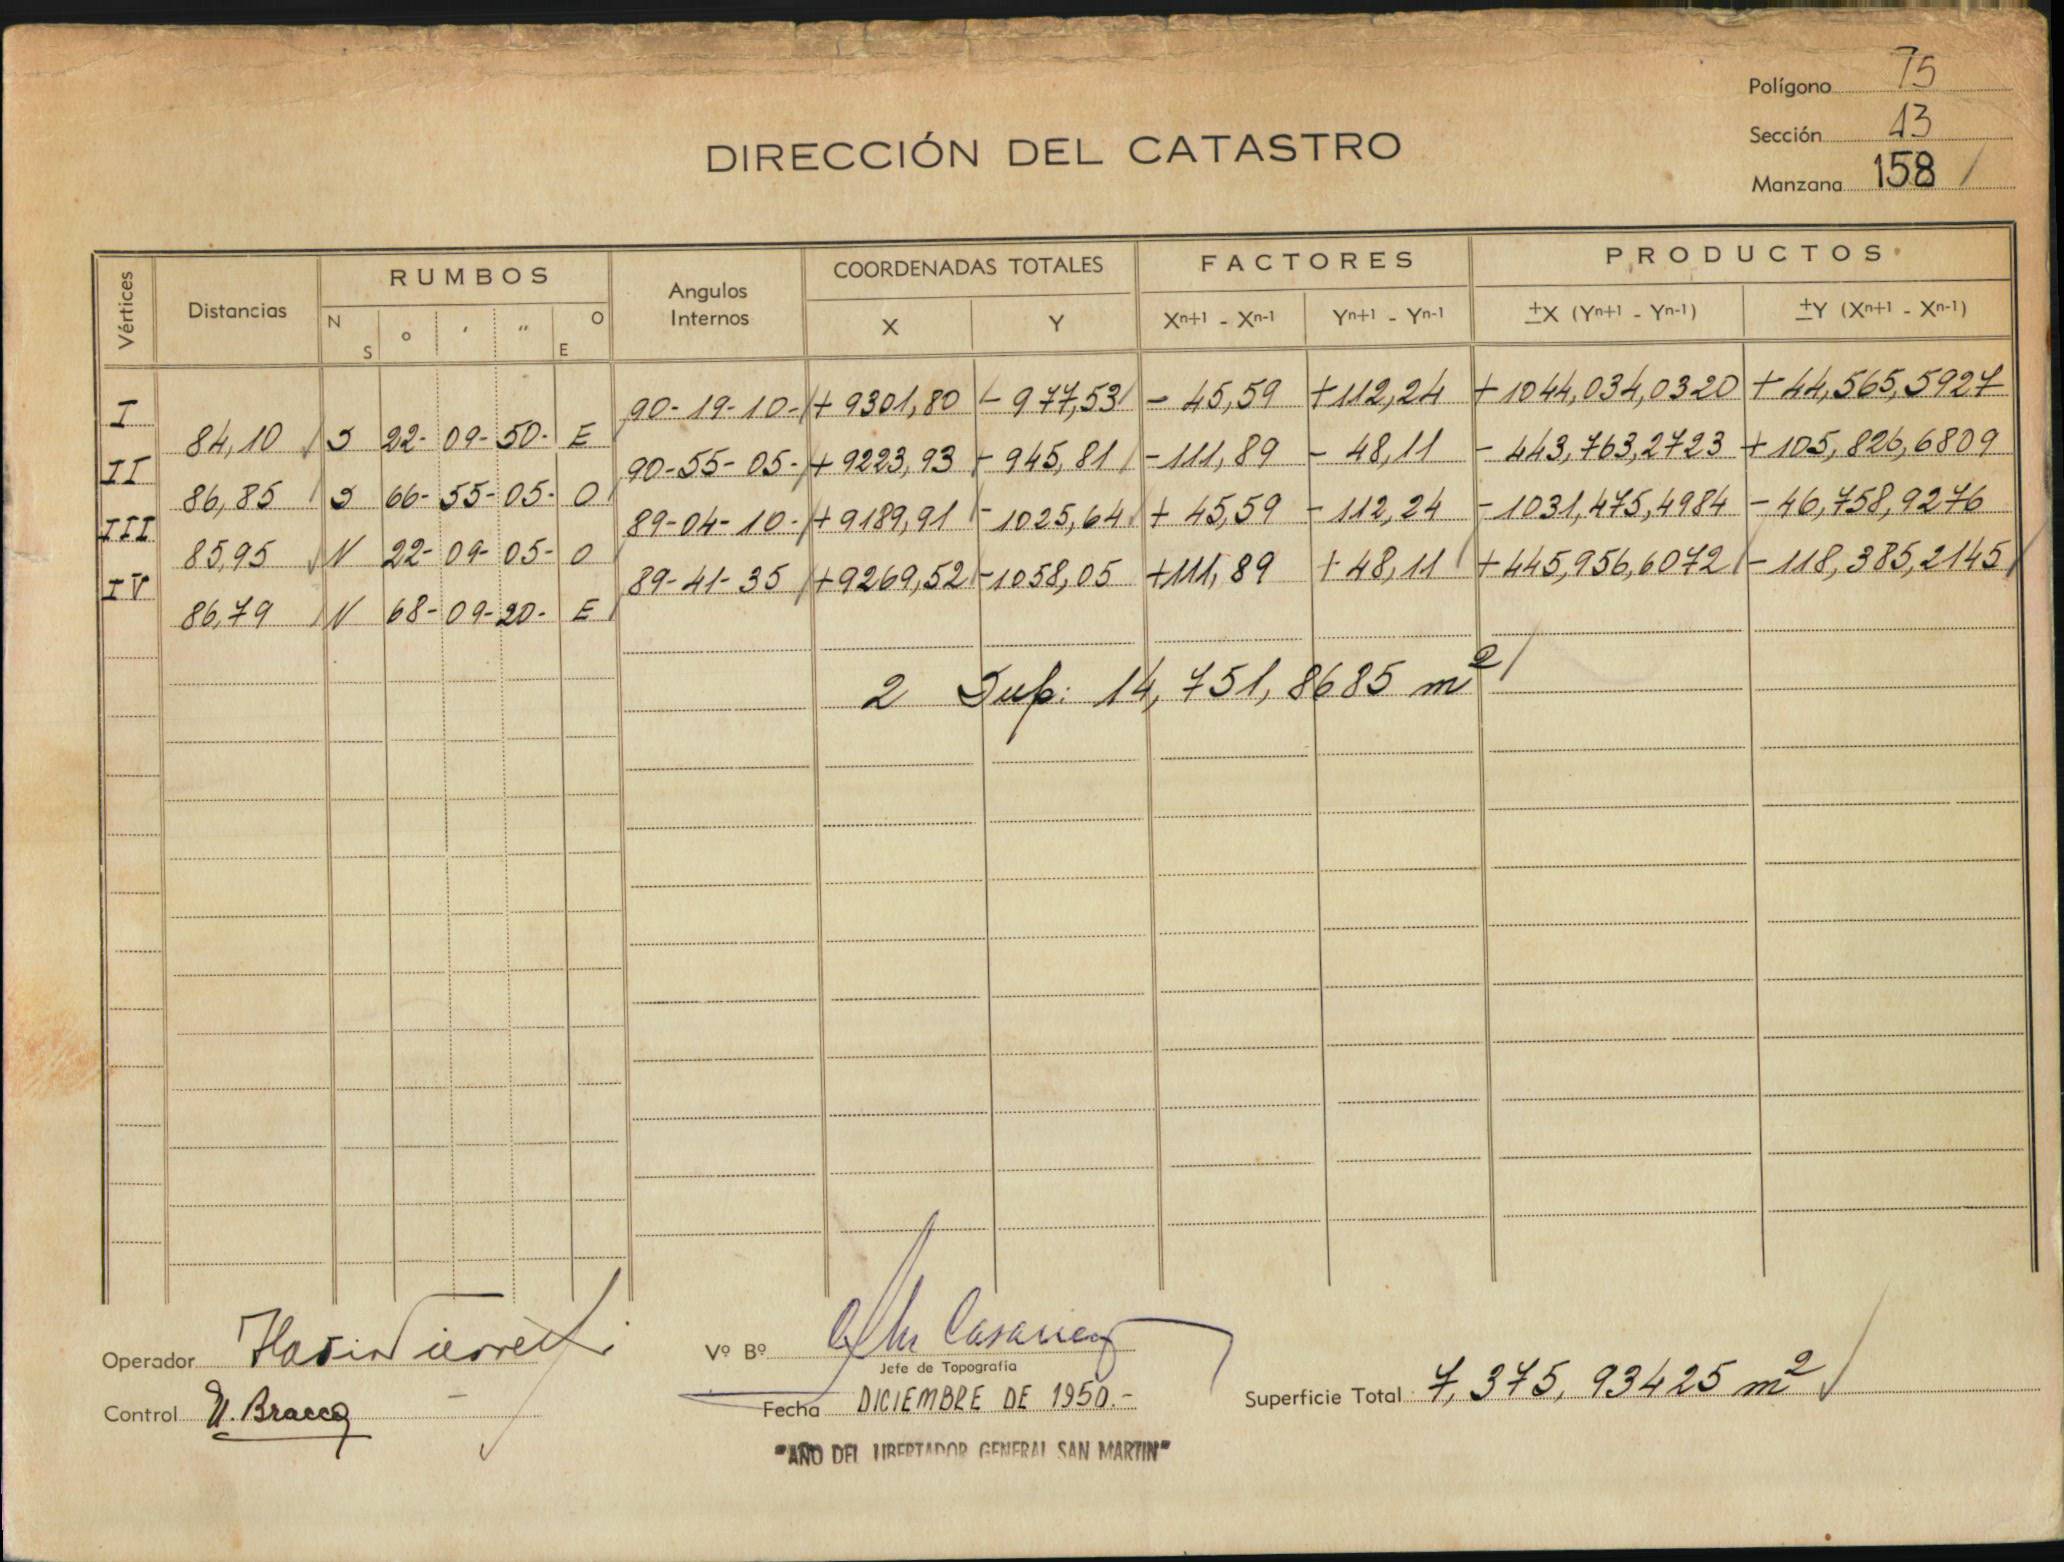 Polígono 75
Sección 13
Manzana 158
DIRECCIÓN DEL CATASTRO
Vértices Distancias RUMBOS Angulos Internos COORDENADAS TOTALES FACTORES PRODUCTOS
N S ° ' " O E X Y Xn+1 - Xn-1 Yn+1 - Yn-1 ±X (Yn+1 - Yn-1) ±Y (Xn+1 - Xn-1)
I 90-19-10- + 9301,80 - 977,53 - 45,59 +112,24 +1044,034,0320 + 44,565,5927
84,10 S 22- 09- 50- E
II 90-55-05- + 9223,93 - 945,81 -111,89 - 48,11 - 443,763,2723 + 105,826,6809
86,85 S 66- 55- 05- O
III 89-04-10- + 9189,91 - 1025,64 + 45,59 - 112,24 - 1031,475,4984 - 46,758,9276
85,95 N 22- 09- 05- O
IV 89-41-35 +9269,52 -1058,05 +111,89 + 48,11 + 445,956,6072 - 118,385,2145
86,79 N 68- 09- 20- E
2 Sup: 14,751,8685 m2
Operador
Control Bracco
Vº Bº
Jefe de Topografía
Fecha DICIEMBRE DE 1950.-
Superficie Total 7,375,93425 m2
"AÑO DEL LIBERTADOR GENERAL SAN MARTIN"